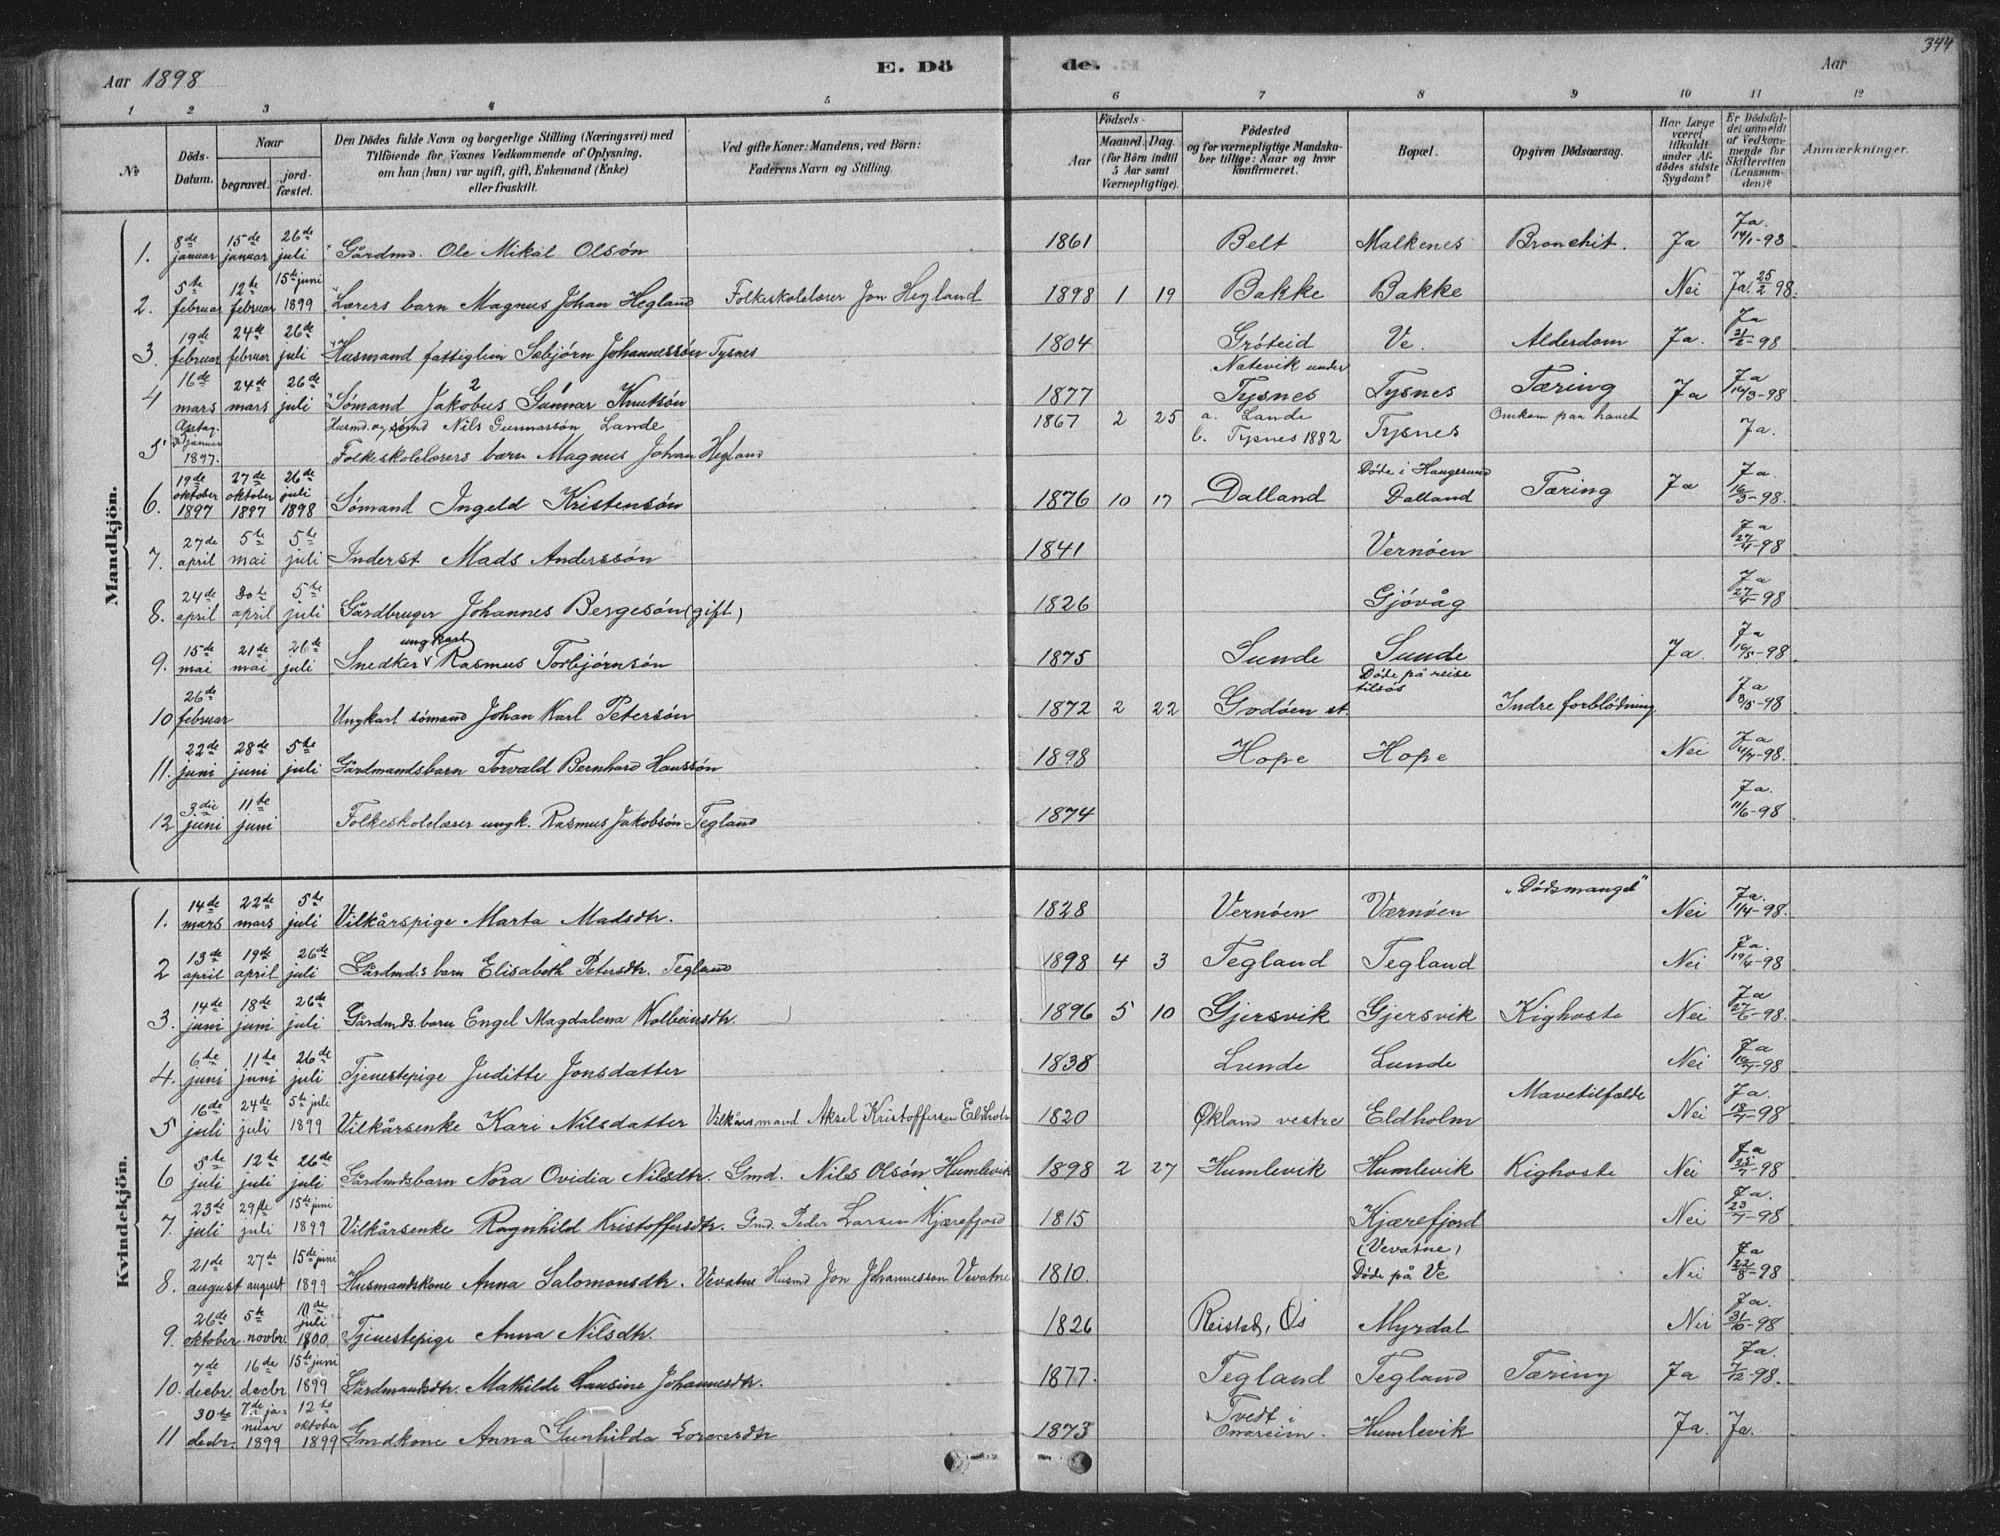 344
Aar 1898 E. Dö de. Aar
1 2 3 4 5 6 7 8 9 10 11 12
No
Döds-Datum.
Naar begravet. jordfæstet.
Den Dödes fulde Navn og borgerlige Stilling (Næringsvei) med Tilföiende for Voxnes Vedkommende af Oplysning. om han (hun) var ugift, gift, Enkemand (Enke) eller fraskilt.
Ved gifte Koner: Mandens, ved Börn: Faderens Navn og Stilling.
Födsels-
Aar
Maaned. Dag. (for Börn indtil 5 Aar samt Værnepligtige).
Födested og for værnepligtige Mandskaber tillige: Naar og hvor konfirmeret.
Bopæl.
Opgiven Dödsaarsag.
Har Læge været tilkaldt under Afdödes sidste Sygdom?
Er Dödsfaldet anmeldt af Vedkommende for Skifteretten (Lensmanden)?
Anmærkninger.
Mandkjön.
1. 8de januar 15de januar 26de juli Gårdmd. Ole Mikal Olsøn 1861 Belt Malkenes Bronchit. Ja Ja. 14/1-98
2. 5te februar 12te februar 15de juni 1899 Lærers barn Magnus Johan Hegland Folkeskolelærer Jon Hegland 1898 1 19 Bakke Bakke Nei Ja. 25/2 98.
3. 19de februar 24de februar 26de juli Husmand fattiglem Sæbjørn Johannessøn Tysnes 1804 Gróteid Ve. Alderdom Ja. Ja 21/2-98
4 16de mars 24de mars 26de juli Sómand Jakobus 2 Gunnar Knutsøn 1877 Natevik under Tysnes Tysnes Tæring Ja Ja 16/3-98
5 januar 1897. Husmd. og sømd Nils Gunnarsøn Lande 1867 2 25 a. Lande b. Tysnes 1882 Tysnes Omkom paa havet Ja.
Folkeskolelærers barn Magnus Johan Hegland
6. 19de oktober 1897 27de oktober 1897 26de juli 1898 Sómand Ingeld Kristensøn 1876 10 17 Dalland Døde i Haugesund Dalland Tæring Ja Ja 16/3-98.
7. 27de april 5te mai 5te juli Inderst Mads Anderssøn 1841 Vernøen Ja 27/4-98
8. 24de april 30te april 5te juli Gårdbruger Johannes Bergesøn (gift) 1826 Gjóvåg Ja 27/4-98
9. 15de mai 21de mai 26de juli Snedker ungkarl Rasmus Torbjørnsøn 1875 Sunde Sunde Ja. Ja 16/5-98
10 26de februar Ungkarl sómand Johan Karl Petersøn 1872 2 22 Godøen st. Døde på reise tilsøs Indre forblódning Ja 3/5-98
11. 22de juni 28de juni 5te juli Gårdmandsbarn Torvald Bernhard Hanssøn 1898 Hope Hope Nei Ja 4/7-98.
12 3die juni 11te juni Folkeskolelærer ungk. Rasmus Jakobsøn Tegland 1874 Ja. 11/6-98
Kvindekjön.
1. 14de mars 22de mars 5te juli Vilkårspige Marta Madsdtr. 1828 Vernøen Værnøen "Dødsmangel" Nei Ja. 1/4-98.
2 13de april 19de april 26de juli Gårdmd.s barn Elisabeth Petersdtr. Tegland 1898 4 3 Tegland Tegland Nei Ja. 19/4-98
3. 14de juni 18de juni 26de juli Gårdmds.barn Engel Magdalena Kolbeinsdtr. 1896 5 10 Gjersvik Gjersvik Kighoste Nei Ja 27/6-98.
4. 6te juni 11te juni 26de juli Tjenestepige Juditte Jonsdatter 1838 Lunde Lunde Nei Ja 16/7-98
5 16de juli 24de juli 5te juli 1899 Vilkårsenke Kari Nilsdatter Vilkårsmand Aksel Kristoffersen Eldholm 1820 Økland vestre Eldholm Mavetilfælde Nei Ja. 18/7-98
6 5te juli 12te juli 26de juli Gårdmdsbarn Nora Ovidia Nilsdtr. Gmd. Nils Olsøn Humlevik 1898 2 27 Humlevik Humlevik Kighoste Nei Ja 25/7-98
7. 23de juli 29de juli 15de juni 1899 Vilkårsenke Ragnhild Kristoffersdtr. Gmd. Peder Larsen Kjærefjord 1815 Kjærefjord Nei Ja. 23/7-98
8. 21de august 27de august 15de juni 1899 Husmandskone Anna Salomonsdtr. Vevatne Husmd Jon Johannesson Vevatne 1810. (Vevatne) Døde på Ve Nei Ja 22/8-98
9. 26de oktober 5te novbr. 10de juli 1800. Tjenestepige Anna Nilsdtr. 1826 Reistad, Os Myrdal Nei Ja. 31/10-98
10. 7de decbr. 16de decbr 15de juni 1899 Gårdmandsdtr. Mathilde Lausine Johannesdtr. 1877. Tegland Tegland Tæring Ja Ja. 7/12-98.
11 30te decbr. 7de januar 1899 12te oktober 1899 Gmdkone Anna Gunhilda Lorensdtr 1873 Tvedt i Onareim. Humlevik Ja. Ja.